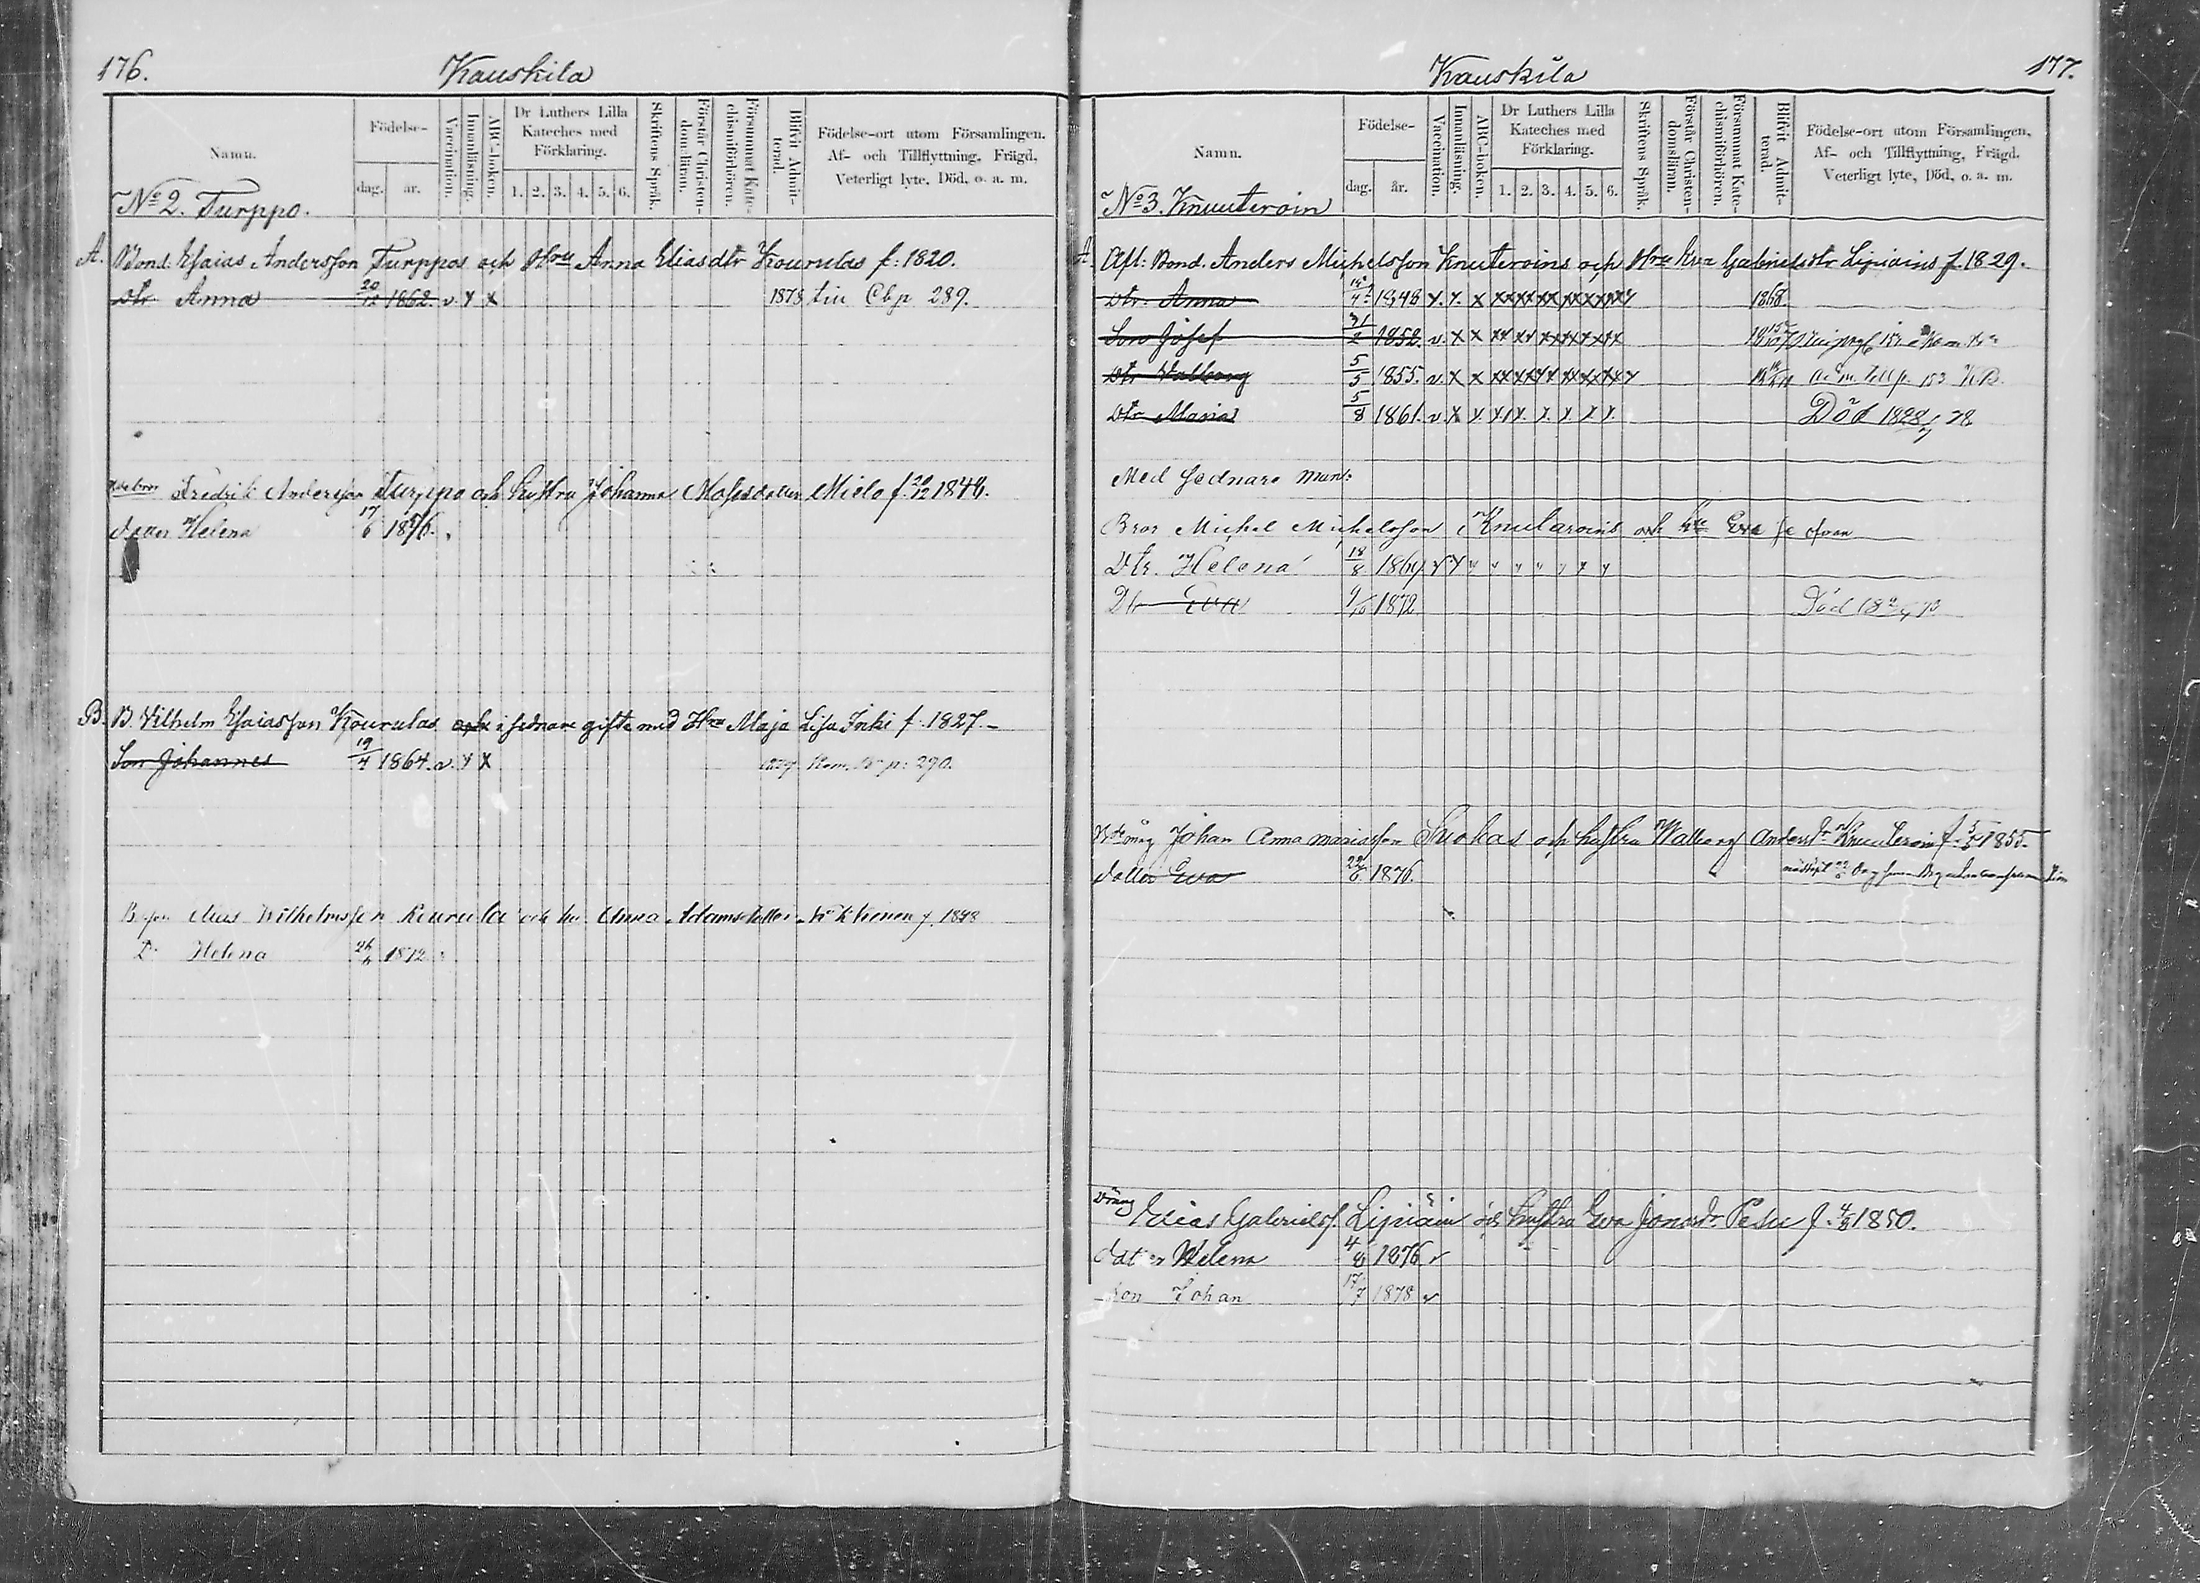 176.
Kauskila
Namn.
Födelse-
dag.
år.
Vaccination.
Innanläsning.
ABC-boken.
Dr Luthers Lilla
Kateches med
Förklaring.
1. 2. 3. 4. 5. 6.
Skriftens Språk.
Förstår Christen-
domsläran.
Försummat Kate-
chismiförhören.
Blifvit Admit-
terad.
Födelse-ort utom Församlingen.
Af- och Tillflyttning, Frägd,
Veterligt lyte, Död, o. a. m.
No 2. Turppo.
A. Bond. Esaias Andersson Turppos och Hru Anna Eliasdtr Kourulas f. 1820.
dtr Anna 20/12 1862. v. x x 1878 Lin Cbp 289.
Fredrik Andersson Turppo och hustru Johanna Mosisdotter Mielo f. 20/12 1848.
Helena 17/6 1876.
B. B. Vilhelm Esaiasson Kourulas och i sednare gifte med Hru Maja Lisa Inki f. 1827.
Son Johannes 19/4 1864. v. x x p. 290.
Wilhelmsson Kourula och hu Anna Adamsdotter f. 1848
D. Helena 1872
Kauskila
177.
Namn.
Födelse-
dag.
år.
Vaccination.
Innanläsning.
ABC-boken.
Dr Luthers Lilla
Kateches med
Förklaring.
1. 2. 3. 4. 5. 6.
Skriftens Språk.
Förstår Christen-
domsläran.
Försummat Kate-
chismiförhören.
Blifvit Admit-
terad.
Födelse-ort utom Församlingen,
Af- och Tillflyttning, Frägd.
Veterligt lyte, Död, o. a. m.
No 3. Knuuteroin
A. Afl. Bond. Anders Michelsson Knuteroins och Hru Eva Gabrielsdtr Lipiäins f. 1829.
dtr. Anna 1848 x. x. x xx xx xx xx xx xx 1868.
Son Josef 1852. v. x x xx xx xx xx x xx
dtr Valborg 5/5 1855. v. x x xx xx xx xx xx xx p. 153 KB.
dtr Maria 5/8 1861. v. x x. x x. x. x. x. x. Död
Med sednare man:
Bror Michel Michelsson Knutaroins och hu Eva se ofvan
Dtr. Helena 18/8 1869
Dtr Eva 1872 Död
Johan Annamariasson Suokas och hustru Walborg Andersdr Knuuteroin f. 5/5 1855.
dotter Eva 1876.
Dräng Elias Gabrielss. Lipiäin och hustru Eva Jonasdr Pesu f. 1850.
dotter Helena 4/8 1876 v
son Johan 17/7 1878 v